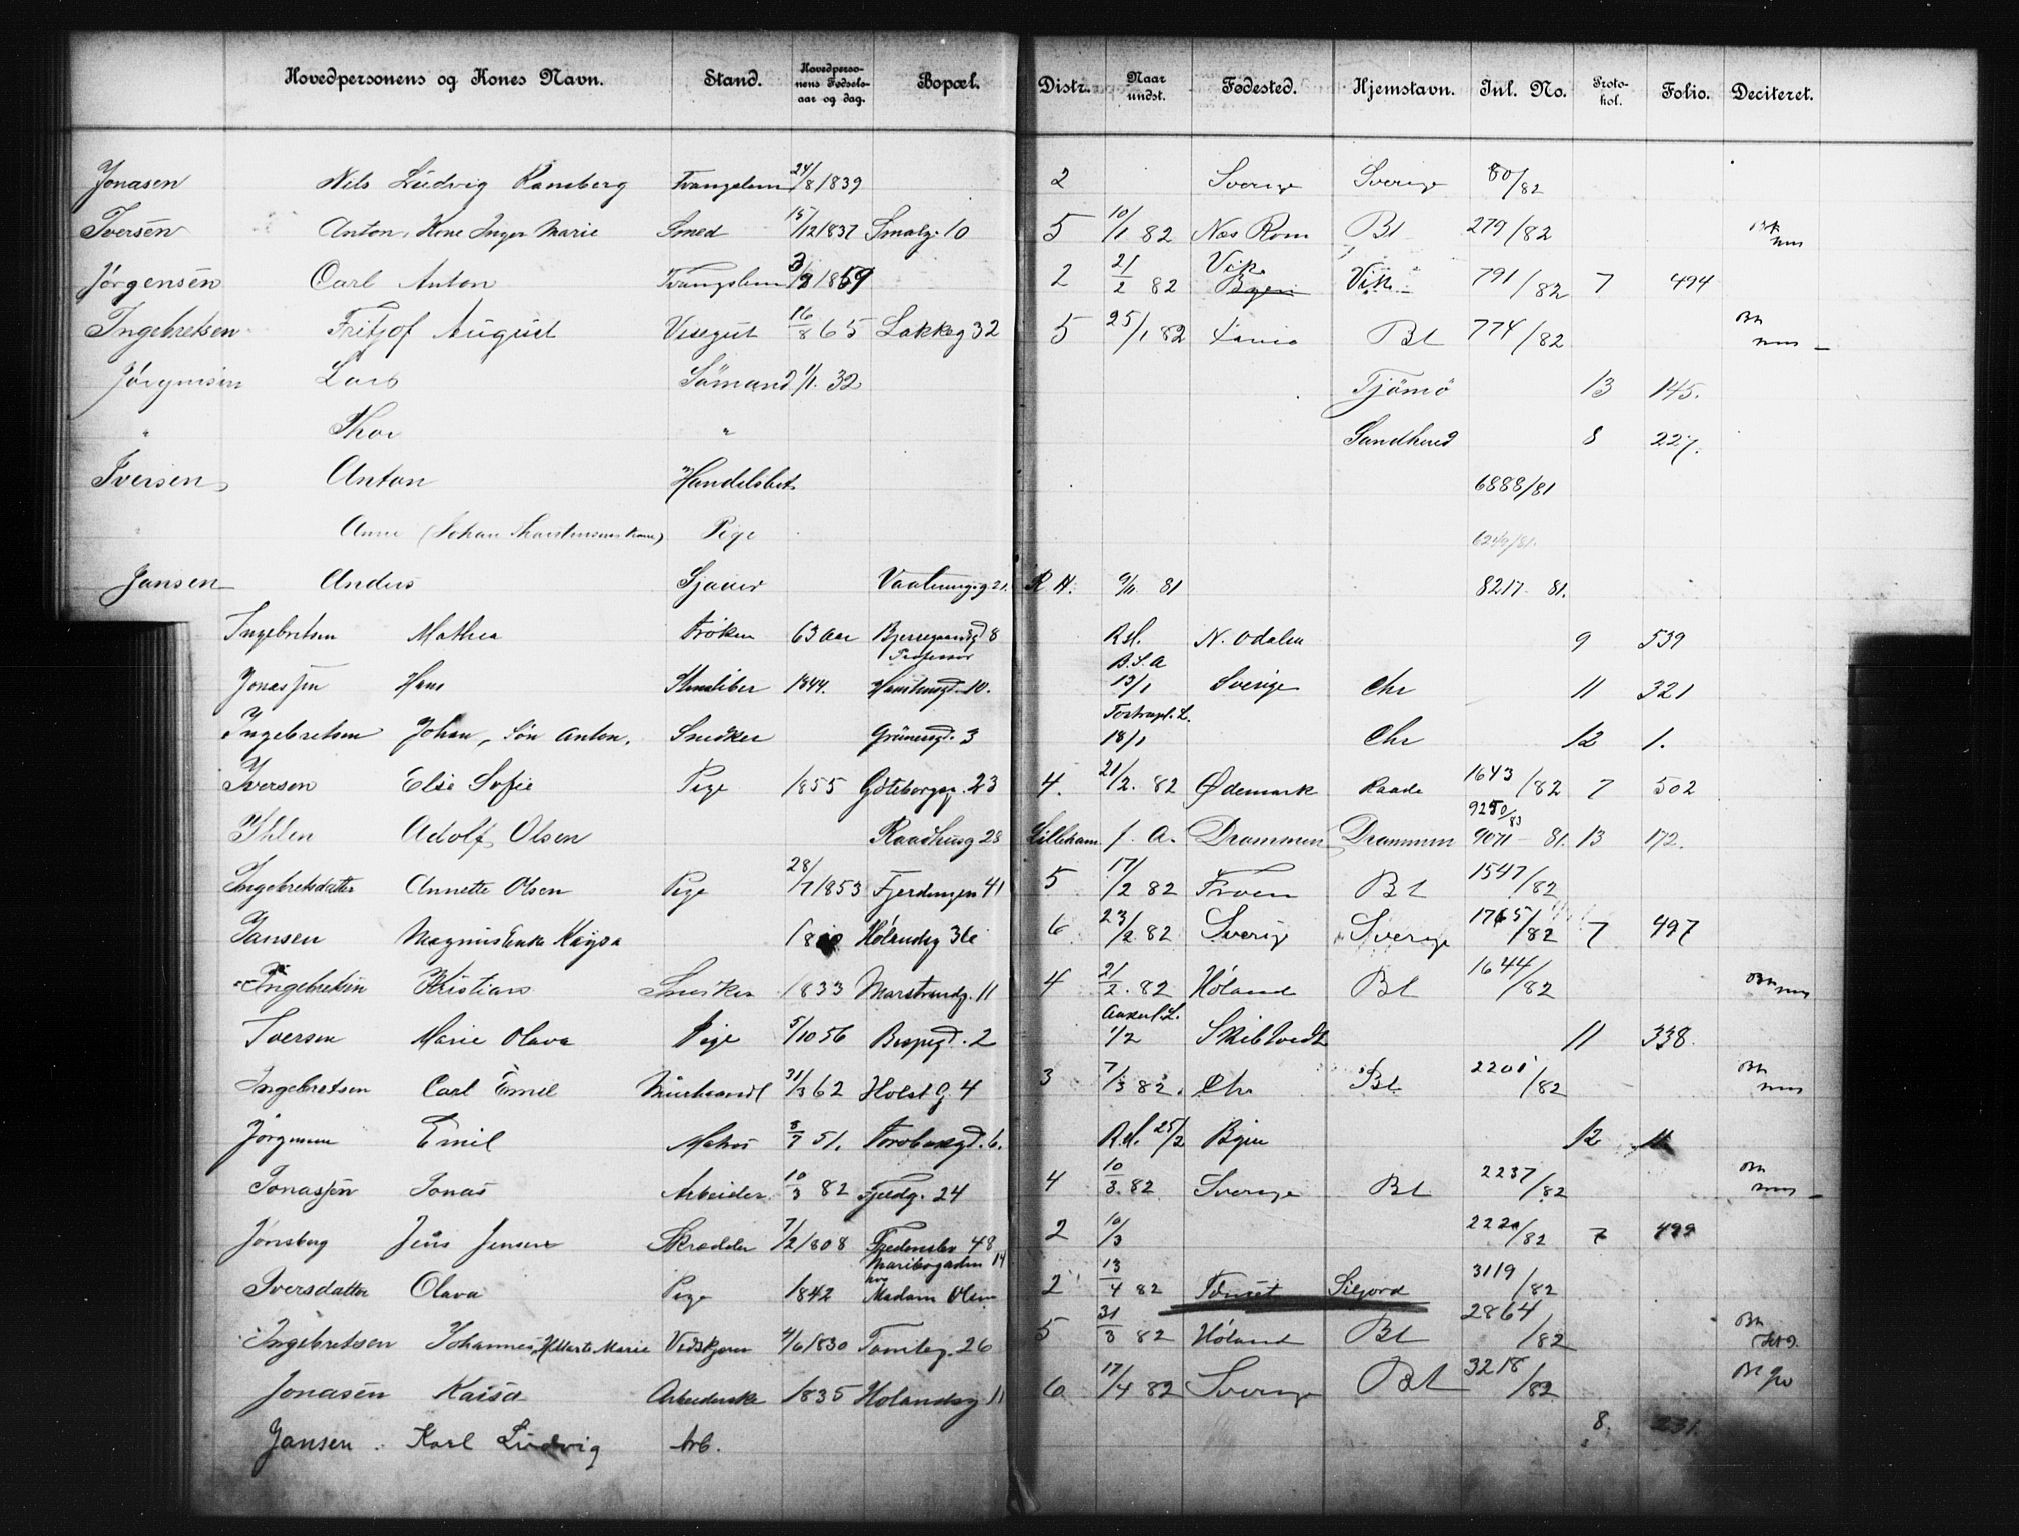 Hovedpersonens og Kones Navn. Stand. Hovedpersonens Fødselsaar og dag. Bopæl. Distr. Naar undst. Fødested. Hjemstavn. Jnl. No. Protokol. Folio. Deciteret.
Jonasen Nils Ludvig Ramberg Tvangslem 24/8 1839 2 Sverige Sverige 80/82
Iversen Anton, Kone Inger Marie Smed 15/12 1837 Smalg. 10 5 10/1 82 Næs Rom Bl 279/82
Jørgensen Carl Anton Tvangslem 2 21/2 82 Vik Vik 791/82 7 494
Ingebretsen Fritjof August Visegut 16/8 65 Lakkeg 32 5 25/1 82 Bl 774/82
Jørgensen Lars Sömand 1/1. 32 Tjömö 13 145.
" Thor " Sandherred 8 227.
Iversen Anton Handelsbet. 6888/81
" Anne (Johan Kone) Pige
Jansen Anders Sjauer Vaalerengg. 21. R.H. 9/11 81 8217 81.
Ingebretsen Mathea Frøken 63 Aar 8 R.H. N. Odalen 9 539
Jonassen Hans Stenhilber 1844. Professor 10. B.S.A 13/1 Sverige Chr 11 321
Ingebretsen Johan, Søn Anton. Snedker Grünersgd. 3 18/1 Chr 12 1.
Iversen Else Sofie Pige 1855 Göteborgg. 23 4. 21/2. 82 Ødemark Raade 1643/82 7 502
Ihlen Adolf Olsen Raadhusg 28 Lilleham f. A. Drammen Drammen 9250/83 9071 - 81. 13 172.
Ingebretsdatter Annette Olsen Pige 28/7 1853 Fjerdingen 41 5 17/2 82 Froen Bl 1547/82
Jansen Magnus Kajsa Hølandsg 6 23/2 82 Sverig Sverige 1765/82 7 497
Ingebretsen Kristian Snedker 1833 Marstrandg. 11 4 21/2. 82 Høland Bl 1644/82
Iversen Marie Olava Pige 5/10 56 Bispegd. 2 1/2 Skibtvedt 11 338.
Ingebretsen Carl Emil Murhaandl 31/3 62 Holst G. 4 3 7/3 82. Chr Bl 2201/82
Jørgensen Emil 51. 6. R.H. 25/2 Byen 12
Jonassen Jonas Arbeider 10/3 82 Fjeldg. 24 4 10/3. 82 Sverige Bl 2237/82
Jonsberg Jens Jensen Skrædder 7/2 1808 Fredenslev 48 2 10/3 2220/82 7 499
Iversdatter Olava Pige 1842 Maribogaden 14 hos Madam Olsen 2 13/4 82 Tönset Siljord 3119/82
Ingebretsen Johannes, H. Marte Marie Vedskjærer 4/6 1830 Tomteg. 26 5 31/3 82 Høland Bl 2864/82
Jonasen Kaisa Arbeiderske 1835 Hølandsg 11 6 17/4 82 Sverige Bl 3218/82
Jansen Karl Ludvig Arb. 8. 231.